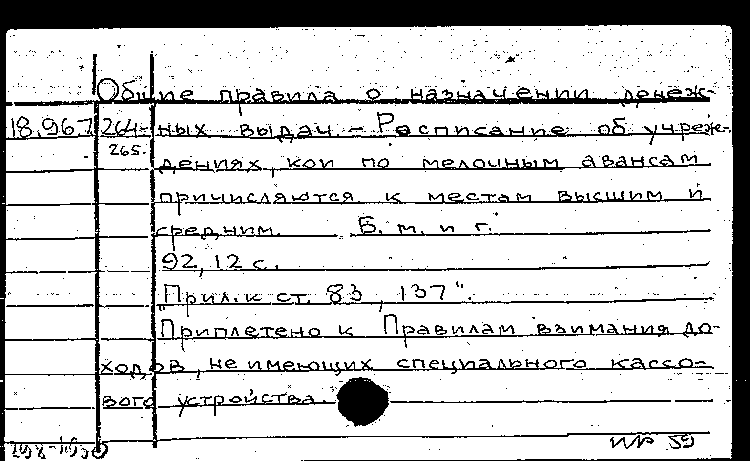 Общие правила о назначении денеж-
18.967 264- ных выдач. – Расписание об учреж-
265. дениях, кои по мелочным авансам
причисляются к местам высшим и
средним. Б. м. и г.
92, 12 с.
"Прил. к ст. 83, 137".
Приплетено к Правилам взимания до-
ходов, не имеющих специального кассо-
вого устройства.